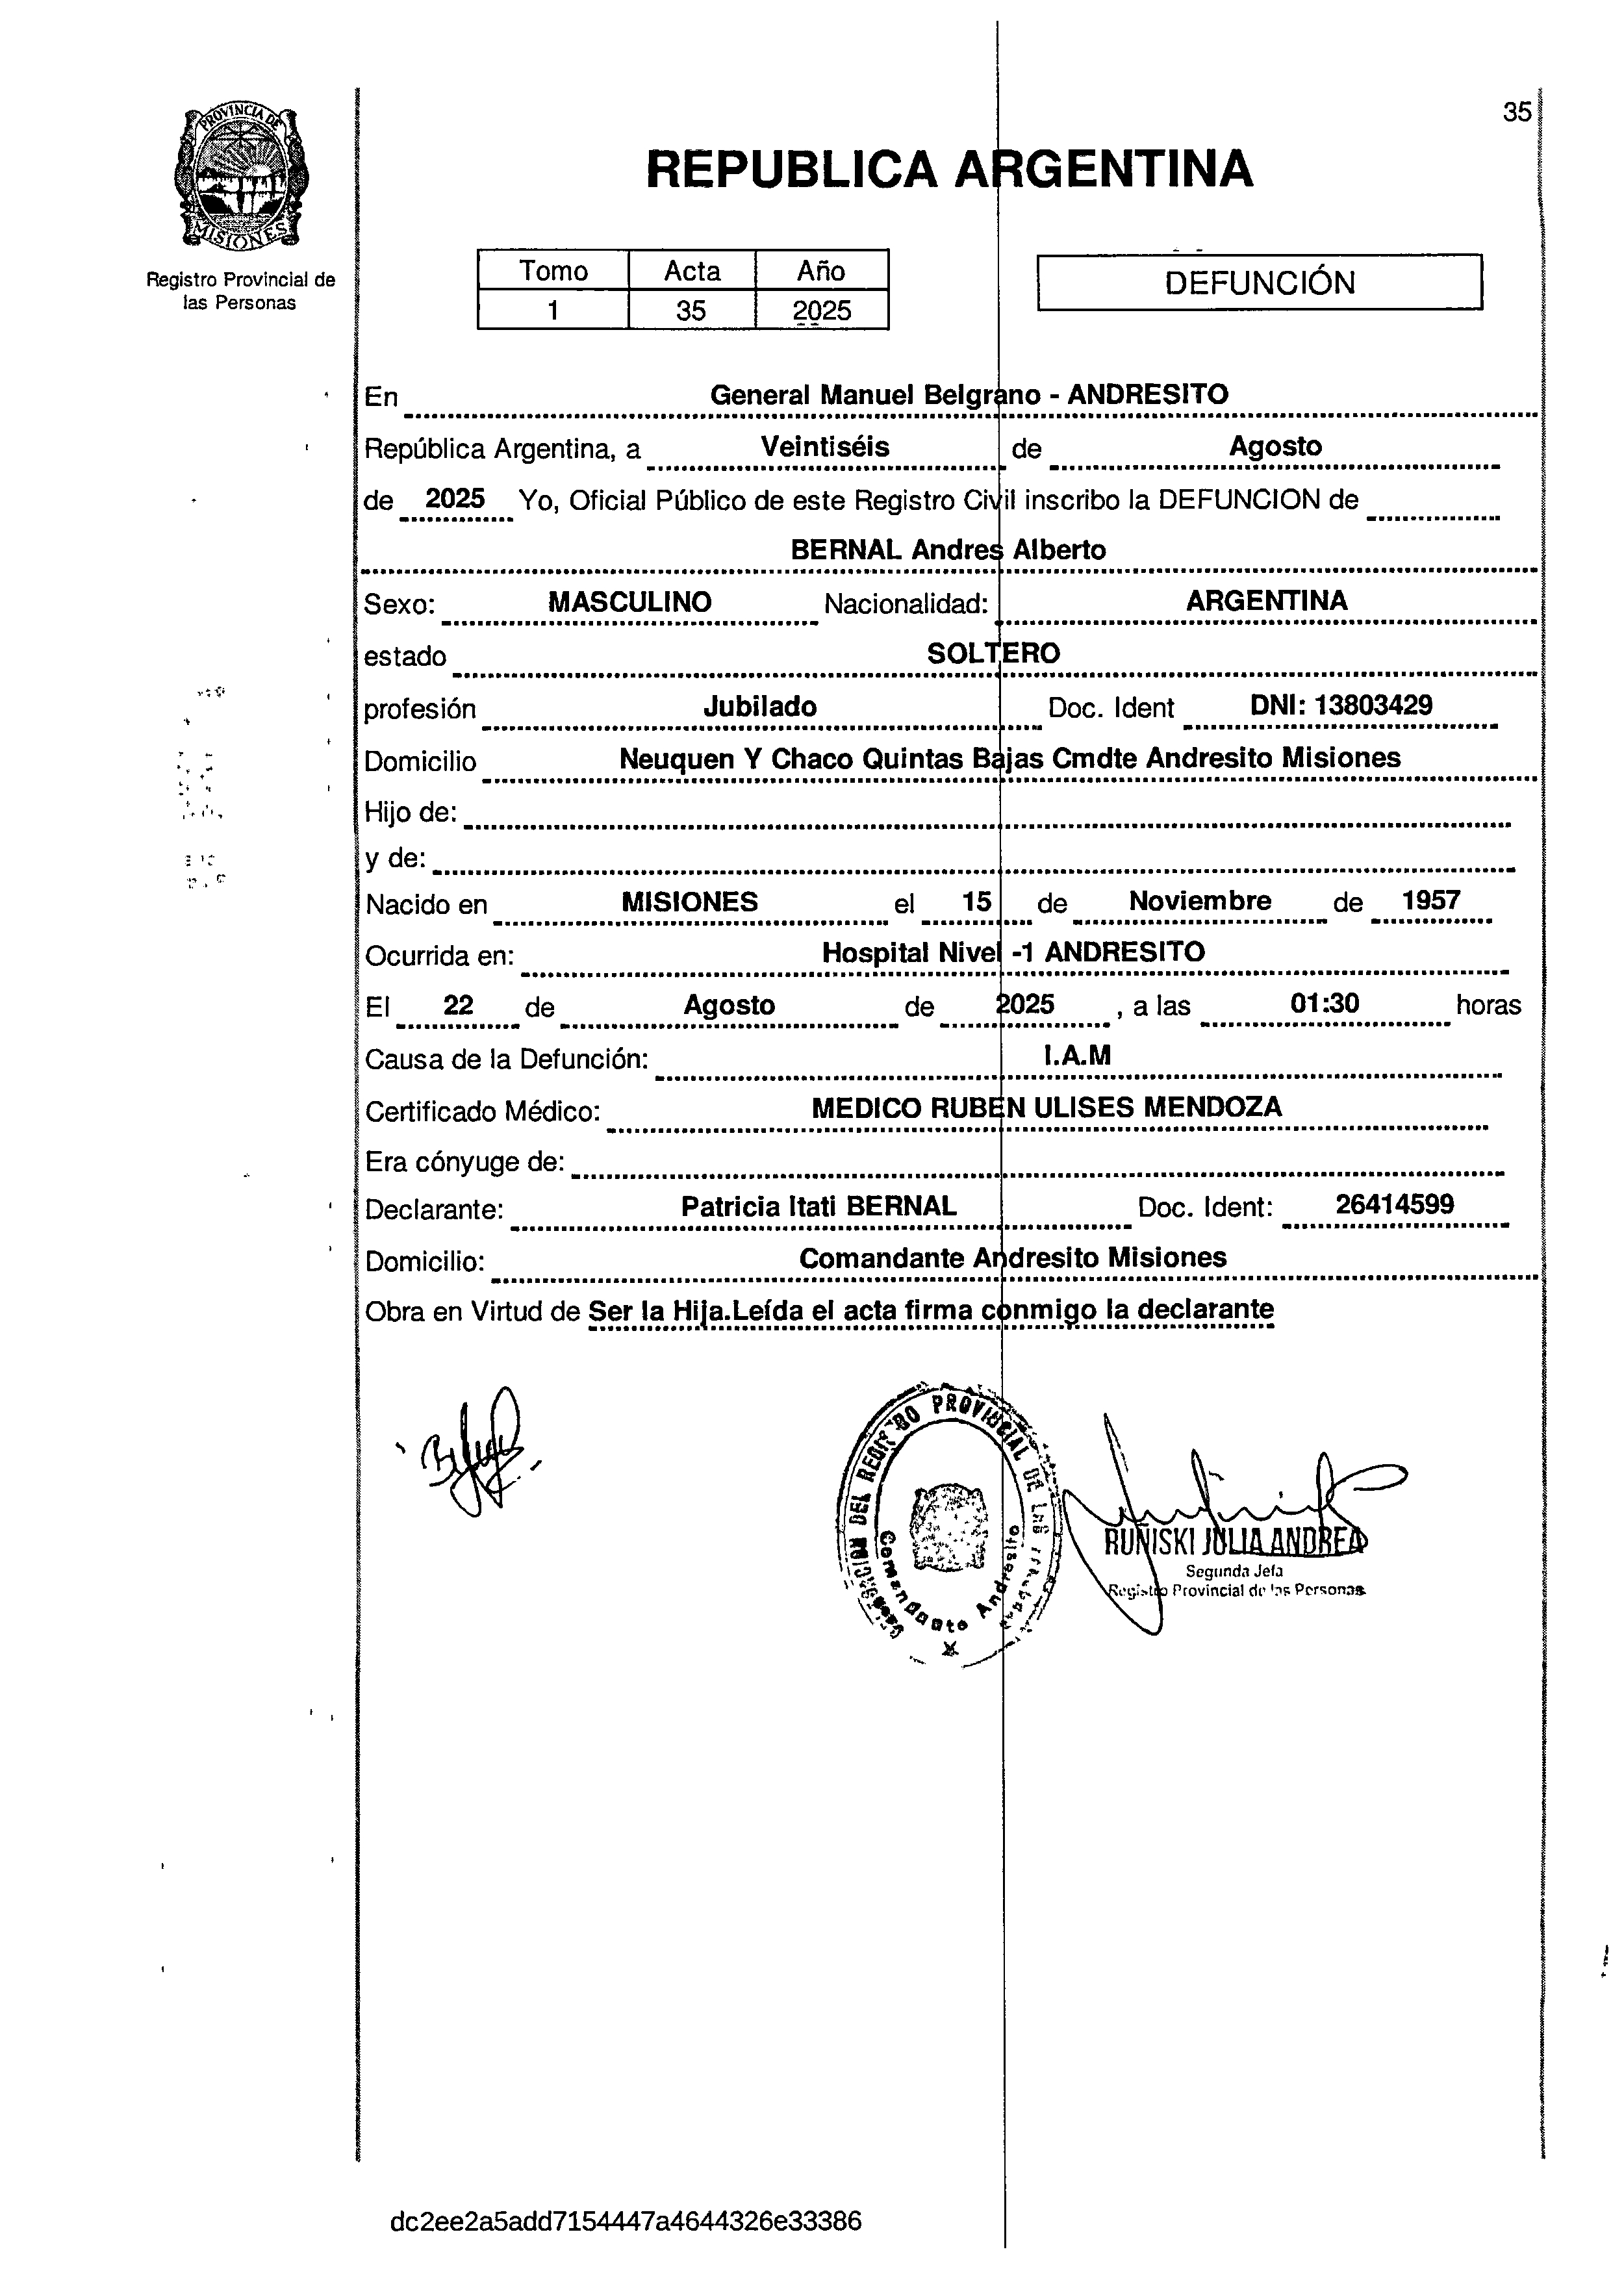 35
PROVINCIA DE
MISIONES
Registro Provincial de
las Personas
REPUBLICA ARGENTINA
Tomo Acta Año
1 35 2025
DEFUNCIÓN
En General Manuel Belgrano - ANDRESITO
República Argentina, a Veintiséis de Agosto
de 2025 Yo, Oficial Público de este Registro Civil inscribo la DEFUNCION de
BERNAL Andres Alberto
Sexo: MASCULINO Nacionalidad: ARGENTINA
estado SOLTERO
profesión Jubilado Doc. Ident DNI: 13803429
Domicilio Neuquen Y Chaco Quintas Bajas Cmdte Andresito Misiones
Hijo de:
y de:
Nacido en MISIONES el 15 de Noviembre de 1957
Ocurrida en: Hospital Nivel -1 ANDRESITO
El 22 de Agosto de 2025 , a las 01:30 horas
Causa de la Defunción: I.A.M
Certificado Médico: MEDICO RUBEN ULISES MENDOZA
Era cónyuge de:
Declarante: Patricia Itati BERNAL Doc. Ident: 26414599
Domicilio: Comandante Andresito Misiones
Obra en Virtud de Ser la Hija.Leída el acta firma conmigo la declarante
DEL REGISTRO PROVINCIAL DE LAS
Comandante Andresito
RUÑISKI JULIA ANDREA
Segunda Jefa
Registro Provincial de las Personas
dc2ee2a5add7154447a4644326e33386